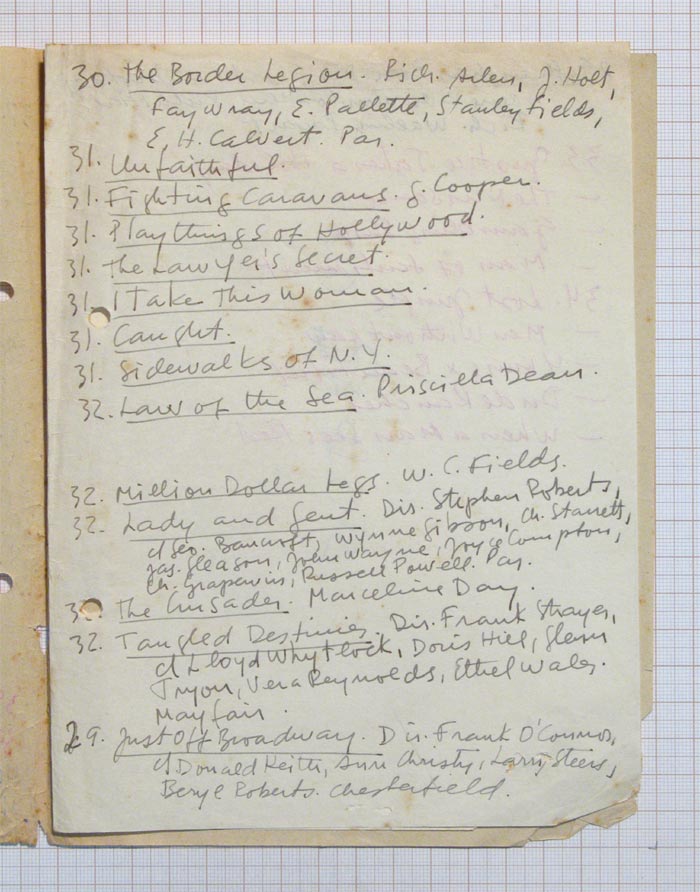 30. The Border Legion. Rich. Arlen, J. Holt,
Fay Wray, E. Pallette, Stanley Fields,
E. H. Calvert. Par.
31. Unfaithful.
31. Fighting Caravans. G. Cooper.
31. Playthings of Hollywood.
31. The Lawyer's Secret.
31. I Take This Woman.
31. Caught.
31. Sidewalks of N.Y.
32. Law of the Sea. Priscilla Dean.
32. Million Dollar Legs. W. C. Fields.
32. Lady and Gent. Dir. Stephen Roberts,
d Geo. Bancroft, Wynne Gibson, Ch. Starrett,
Jas. Gleason, John Wayne, Joyce Compton,
Ch. Grapewin, Russell Powell. Par.
32. The Crusader. Marceline Day.
32. Tangled Destinies. Dir. Frank Strayer,
d Lloyd Whytlock, Doris Hill, Glenn
Tryon, Vera Reynolds, Ethel Wales.
Mayfair.
29. Just Off Broadway. Dir. Frank O'Connor,
d. Donald Keith, Ann Christy, Larry Steers,
Beryl Roberts. Chesterfield.